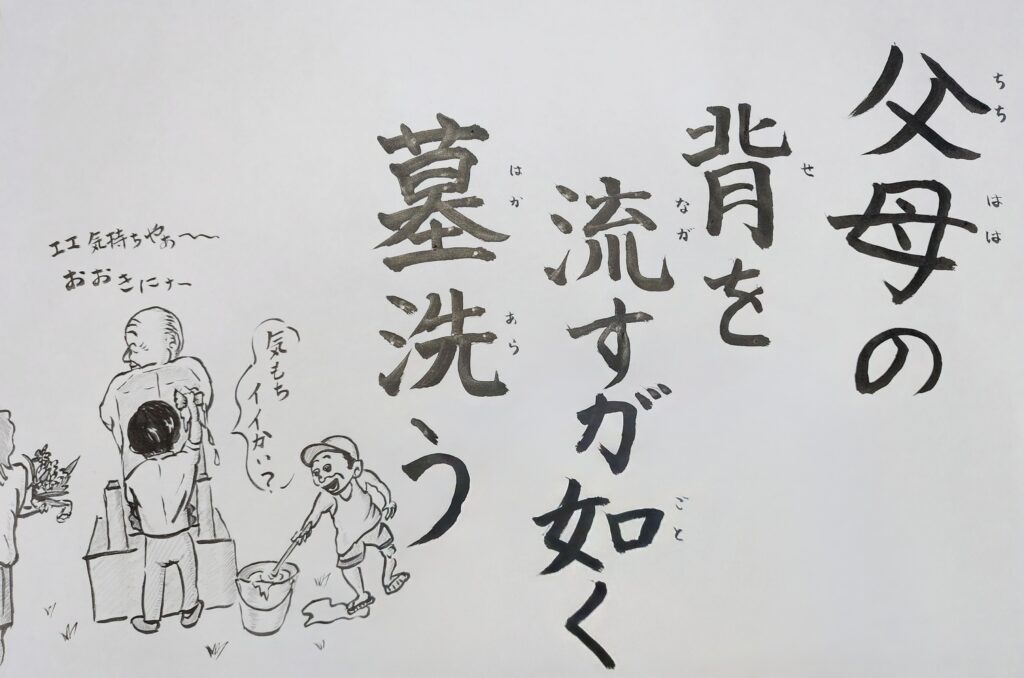 父母の
ちち
はは
背を
せ
流すが如く
なが
ごと
墓洗う
はか
あら
気もち
イイかい？
エエ気持ちやぁ〜〜
おおきにナー